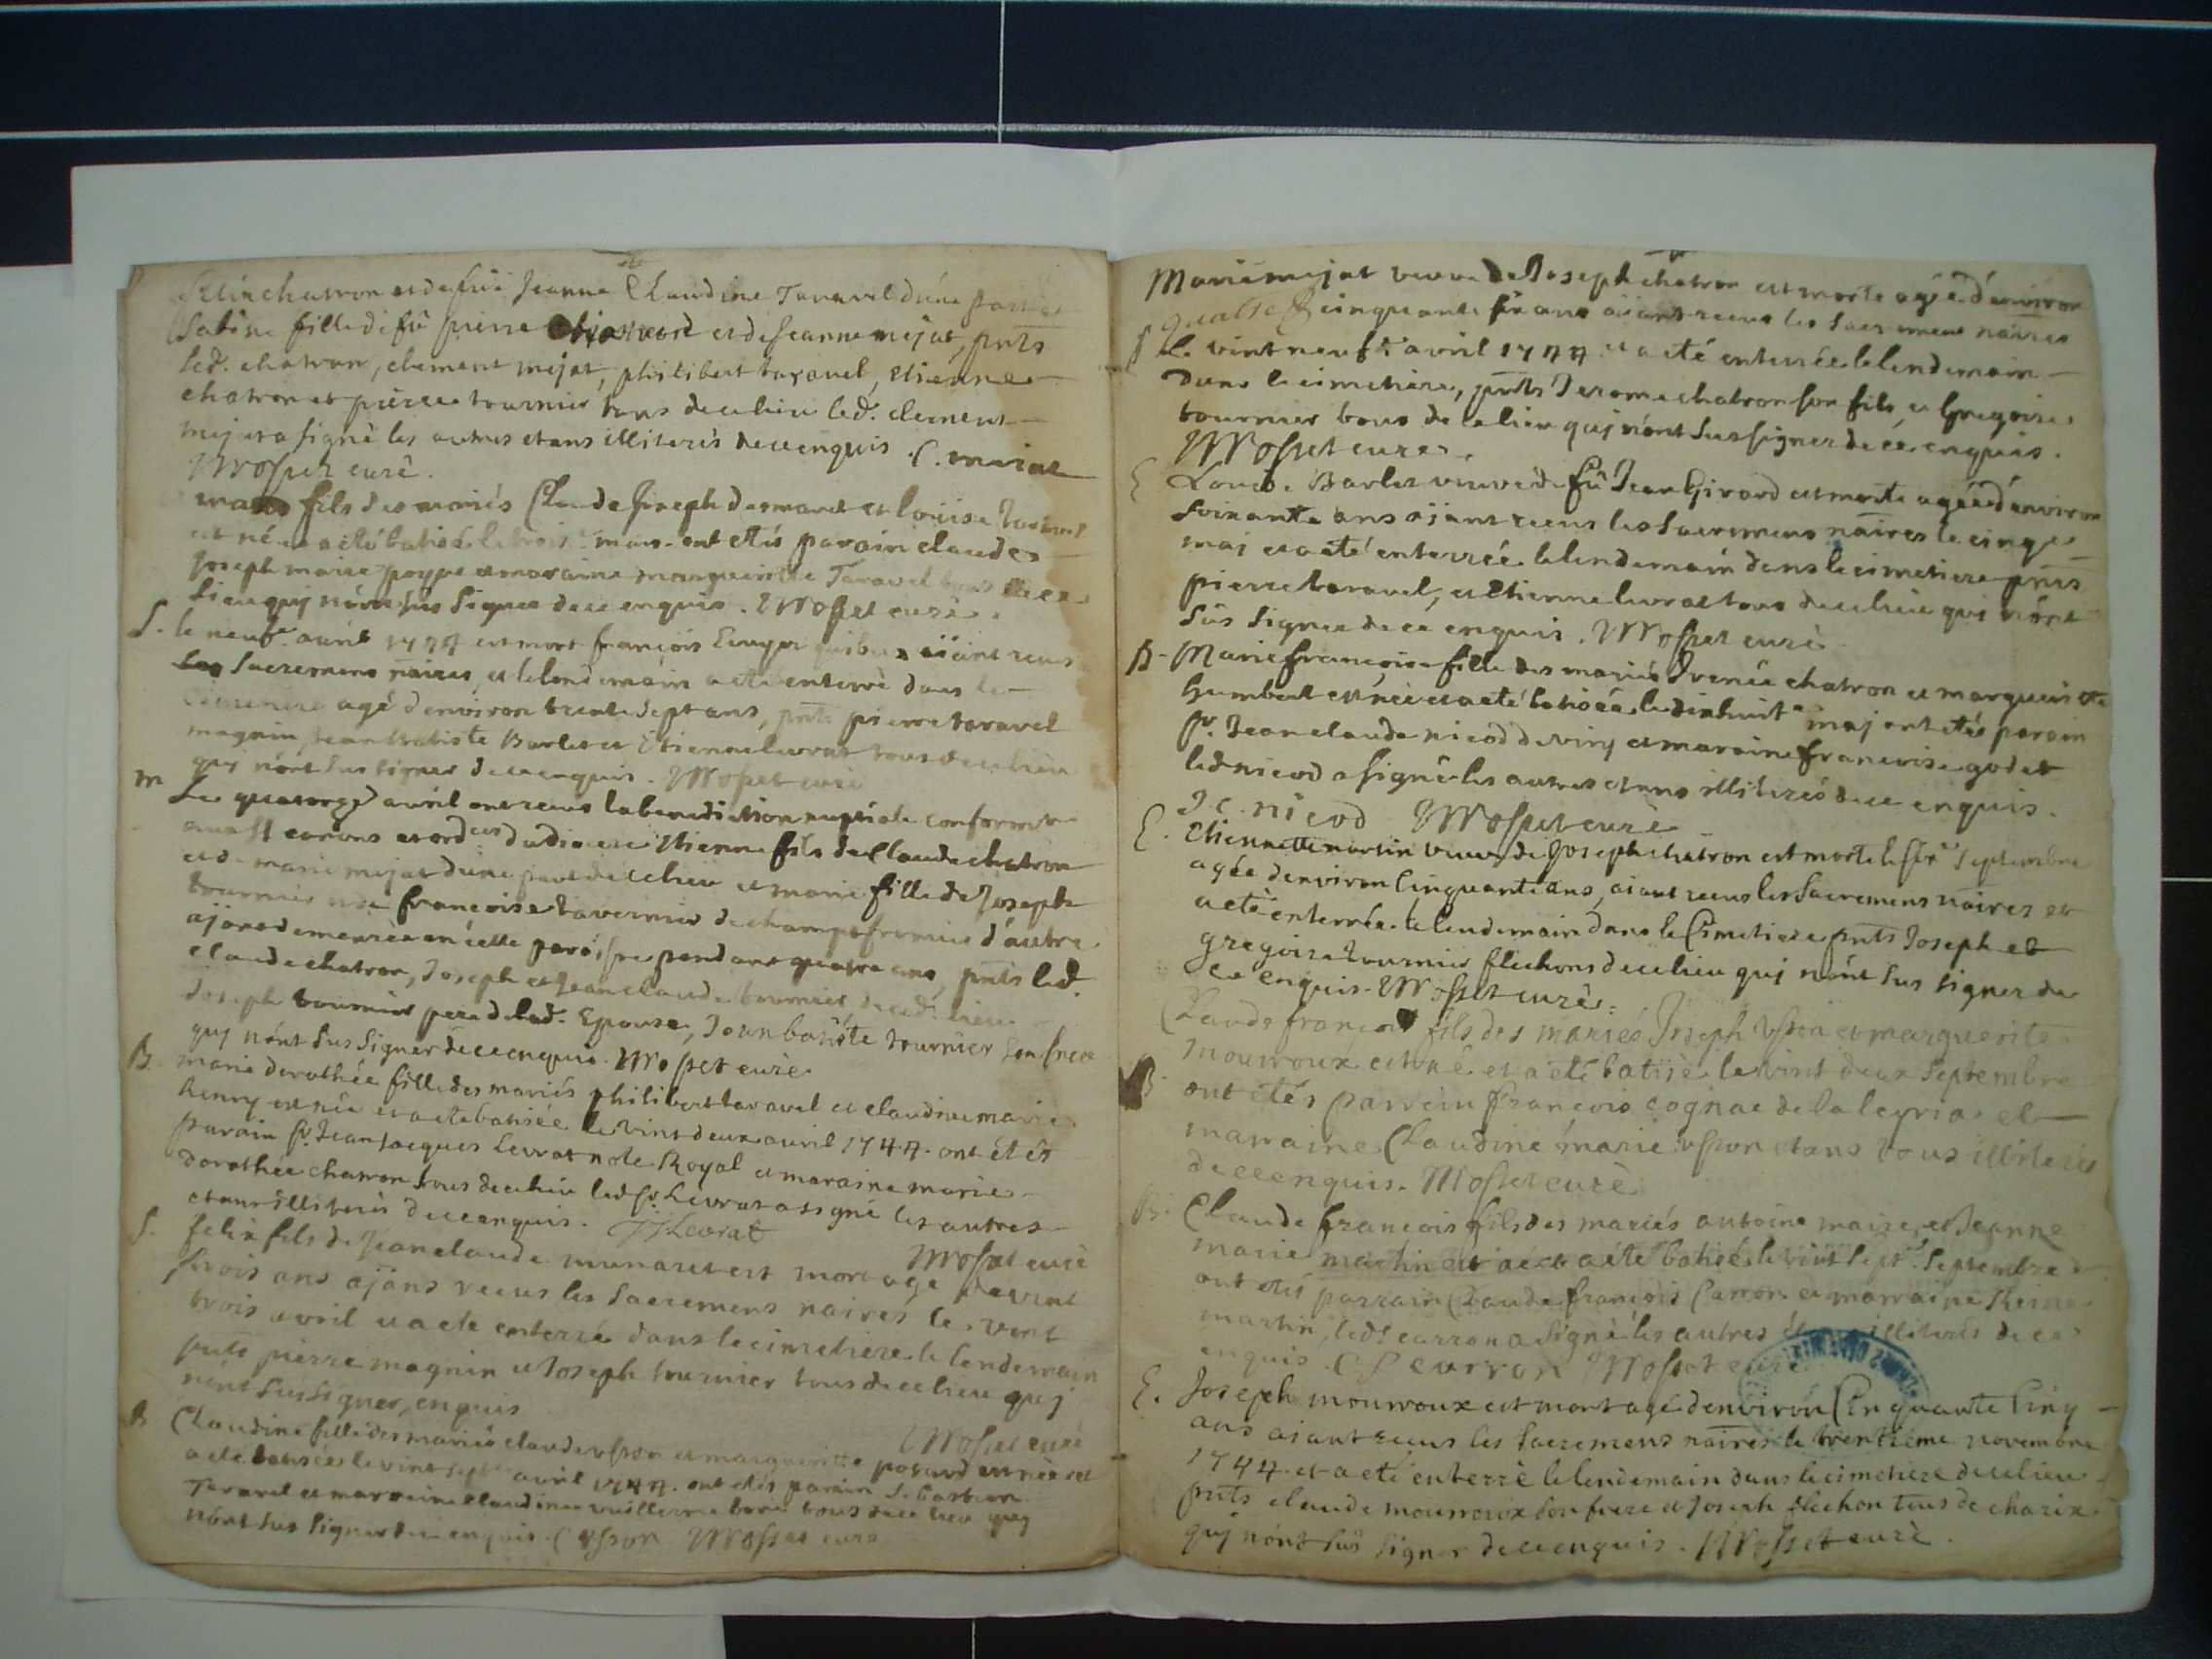 felix chatron et de fuë Jeanne Claudine Taravel d'une part et
Sabine fille de fû pierre et de Jeanne mejat, pnts
led. chatron, clement mejat, philibert taravel, etienne
chatron et pierre tournier tous de ce lieu led. clement
mejat a signè les autres etans illiterés de ce enquis. C. mejat
Mosset curè.
fils des mariés Claude Joseph desmaret et loüise
est né et a eté batisé le trois mars ont etés parain claude
Joseph marie poype et maraine margueritte Taravel tous de ce
lieu quj n'ont sus signer de ce enquis. Mosset curè.
S. le neufe avril 1744 est mort françois aiiant recus
les Sacremens naires, et le lendemain a eté enterrè dans le
cimetiere agé d'environ trente sept ans, pnts pierre taravel
magnin, Jean batiste Barlet et Etienne livrat tous de ce lieu
quj n'ont sus signer de ce enquis. Mosset curè
M Le quatorze avril ont recus la benediction nuptiale conforme
aux Sts canons et ordces du diocese Etienne fils de Claude chatron
et de marie mejat d'une part de ce lieu et marie fille de Joseph
tournier et de françoise tavernier de champfromier d'autre
ajant demeurée en cette paroisse pendant quatre ans, pnts led.
claude chatron, Joseph et Jean claude tournier de ced. lieu
Joseph tournier pere de lad. Epouse, Jean batiste tournier son frere
quj n'ont sus signer de ce enquis. Mosset curè
B. marie dorothée fille des mariés philibert taravel et claudine marie
henry est née et a eté batisée le vint deux avril 1744. ont etés
parain sr. Jean Jacques Levrat note Royal et maraine marie
dorothée chatron tous de ce lieu led sr. Levrat a signé les autres
etans illiterés de ce enquis. JJ Levrat
Mosset curè
S. felix fils de Jean claude munaret est mort agé de vint
trois ans ajans recus les Sacremens naires le vint
trois avril et a eté enterré dans le cimetiere le lendemain
pnts pierre magnin et Joseph tournier tous de ce lieu quj
n'ont sus signer, enquis
Mosset curè
B Claudine fille des mariés claude usson et margueritte posard est née et
a eté batisée le vint sept avril 1744. ont etés parain Sebastien
Taravel et maraine claudine tous de ce lieu quj
n'ont sus signer de ce enquis. C usson Mosset curè
Marie mejat veuve de Joseph chatron est morte agée d'environ
quatre & cinquante six ans aiiant recus les sacremens naires
S Le vint neufe avril 1744 et a eté enterrée le lendemain
dans le cimetiere, pnts Jerome chatron son fils, et Gregoire
tournier tous de ce lieu quj n'ont sus signer de ce enquis.
Mosset curè.
E Louise Barlet veuve de fû Jean Girard est morte agée d'environ
soixante ans ajant recus les Sacremens naires le cinqe
maj et a eté enterrée le lendemain dans le cimetiere pnts
pierre taravel, et Etienne livrat tous de ce lieu qui n'ont
sûs signer de ce enquis. Mosset curè
B. Marie françoise fille des mariés Irenée chatron et margueritte
humbert est née et a eté batisée le dixhuite maj ont etés parain
sr. Jean claude nicod de viry et maraine françoise godet
led nicod a signè les autres etans illiterés de ce enquis.
J. c. nicod Mosset curè
E. Etiennette martin veuve de Joseph chatron est morte le six septembre
agée d'environ Cinquante ans, aiant recus les Sacremens naires et
a eté enterrée le lendemain dans le Cimetiere pnts Joseph et
gregoire tournier flechons de ce lieu quj n'ont sus signer de
ce enquis. Mosset curè.
Claude françois fils des mariés Joseph Usson et marguerite
mouwroux est né et a eté batisé le vint deux Septembre
B ont etés parrein françois cognac de la leyria et
marraine Claudine marie usson etans tous illiterés
de ce enquis. Mosset curè
B. Claude françois fils des mariés antoine maire et Jeanne
marie martin est né et a été batisé le vint sept. Septembre
ont etés parrain Claude françois Carron et marraine Reine
martin, led. carron a signè les autres illiterés de ce
enquis. C f carron Mosset curè
E. Joseph mouwroux est mort agé d'environ Cinquante Cinq
ans aiant recus les Sacremens naires le trentieme novembre
1744. et a eté enterrè le lendemain dans le cimetiere de ce lieu
pnts claude mouwroux son frere et Joseph flechon tous de charix
quj n'ont sû signer de ce enquis. Mosset curè.